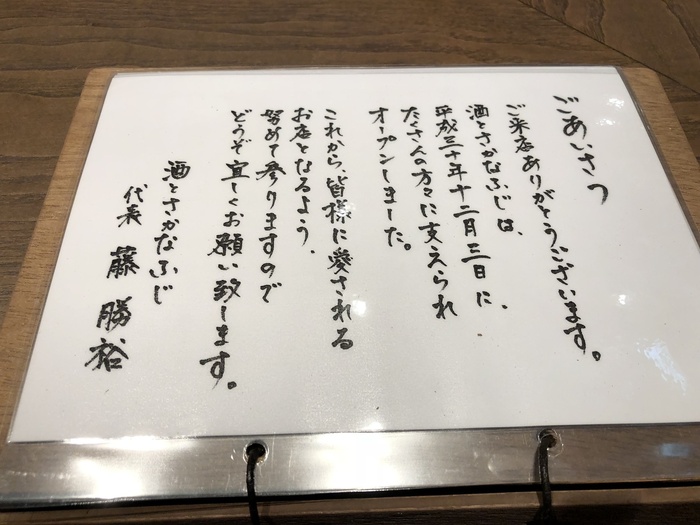 ごあいさつ
ご来店ありがとうございます。
酒とさかなふじは、
平成三十年十二月三日に、
たくさんの方々に支えられ
オープンしました。
これから、皆様に愛される
お店となるよう、
努めて参りますので
どうぞ宜しくお願い致します。
酒とさかなふじ
代表 藤 勝裕